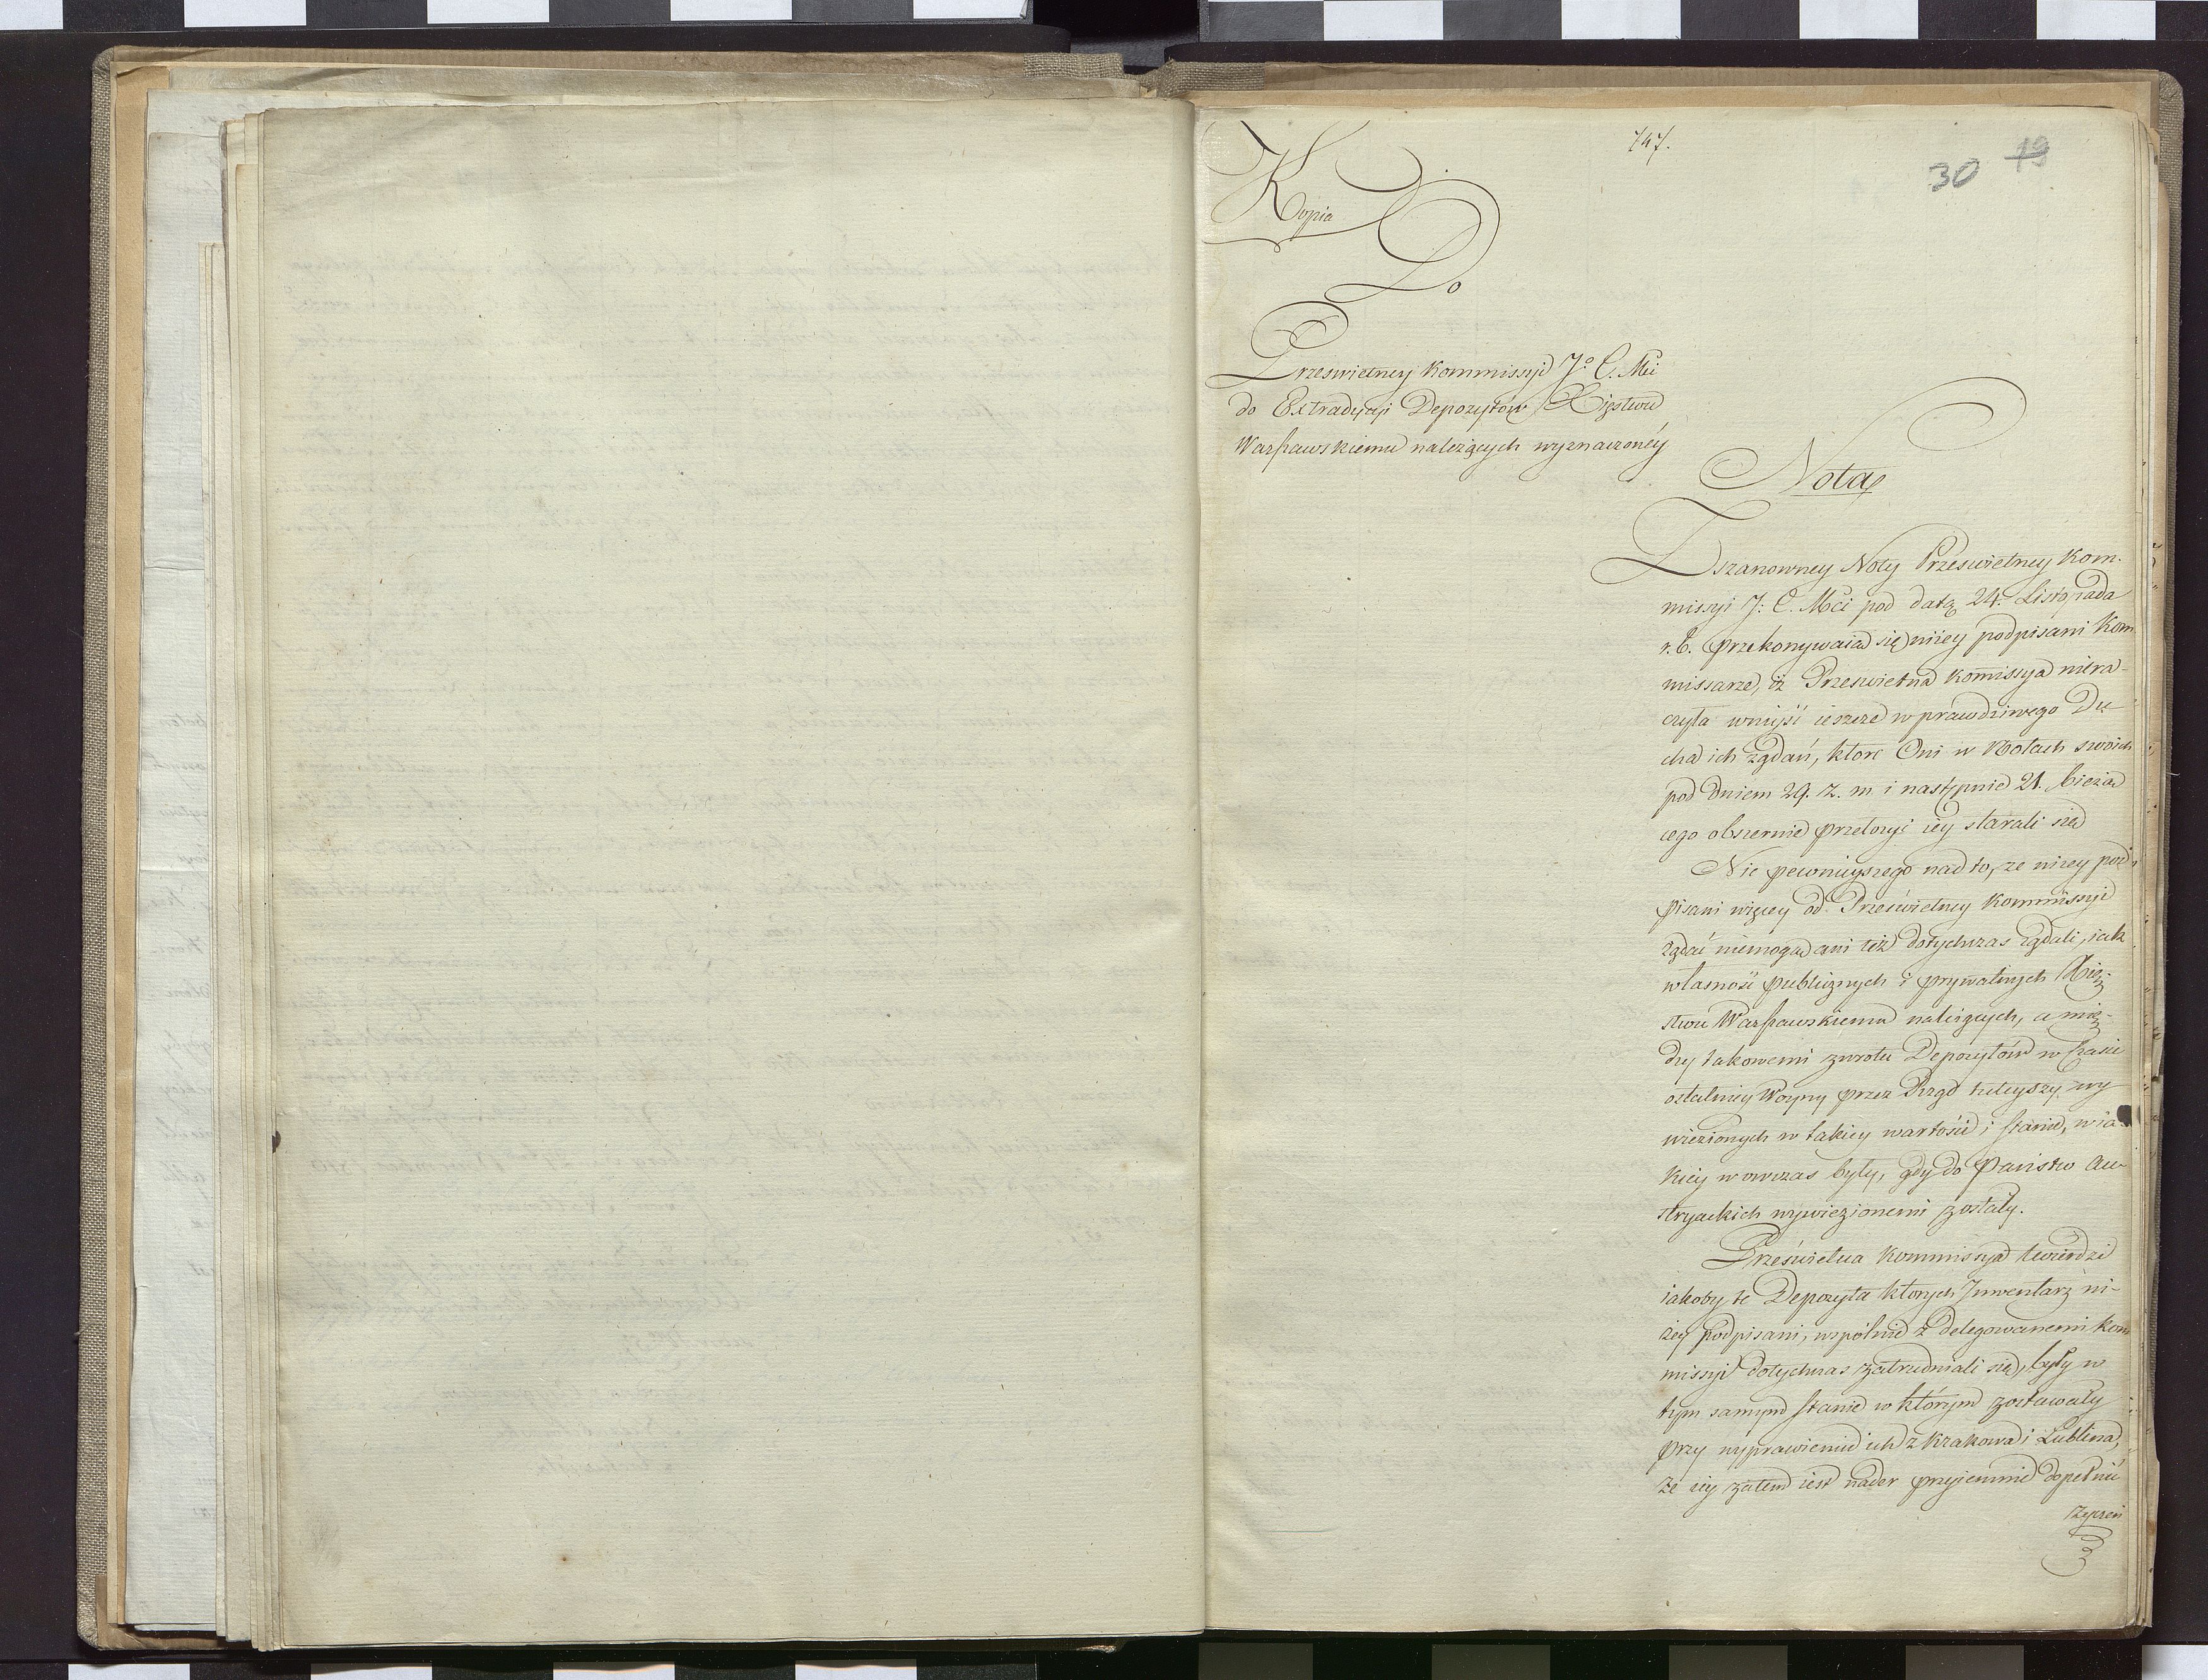 747.
30 19
Kopia
Do
Przeswietney Kommissyi Jº C. Mci
do Extradycyi Depozytow Xięstwu
Warszawskiemu należących wyznaczoney
Nota
Z szanowney Noty Przeswietney Kom-
missyi J: C. Mci pod datą 24. Listopada
r. b. przekonywaią się niżey podpisani Kom
missarze, iż Przeswietna Komissya niera-
czyła wniyść ieszcze w prawdziwego Du
cha ich żądań, ktore Oni w Notach swoich
pod Dniem 29. z. m. i następnie 21. bieżą
cego obszernie przełoży iey starali się
Nic pewnieyszego nad to, że niżey pod-
pisani więcey od Prześwietney Kommissyi
żądać niemogą ani też dotychczas żądali, iak
własności publicznych i prywatnych Xię-
stwu Warszawskiemu należących, a mię-
dzy takowemi zwrotu Depozytów w czasie
ostatniey Woyny przez Rząd tuteyszy wy
wiezionych w takiey wartości i stanie, w ia
kiey wowczas były, gdy do Państw Au-
stryackich wywiezionemi zostały.
Prześwietna Kommissya twierdzi
iakoby te Depozyta ktorych Inwentarz ni-
żey podpisani, wspólnie z delegowanemi Kom
missyi dotychczas zatrudniali się, były w
tym samym stanie w którym zostawały
przy wyprawieniu ich z Krakowa i Lublina,
że iey zatem iest nader przyiemnie dopełnić